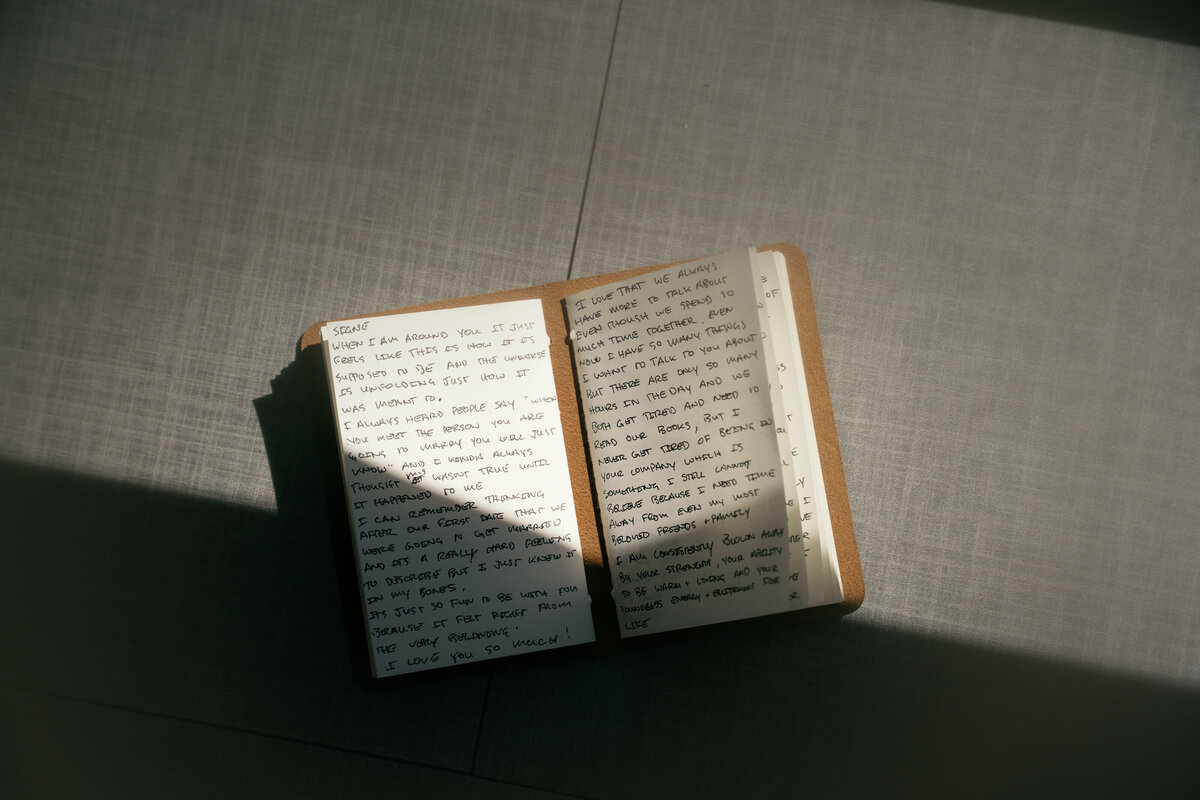 SIGNE
WHEN I AM AROUND YOU IT JUST
FEELS LIKE THIS IS HOW IT IS
SUPPOSED TO BE AND THE UNIVERSE
IS UNFOLDING JUST HOW IT
WAS MEANT TO.
I ALWAYS HEARD PEOPLE SAY "WHEN
YOU MEET THE PERSON YOU ARE
GOING TO MARRY YOU WILL JUST
KNOW" AND I KINDA ALWAYS
THOUGHT THIS WASNT TRUE UNTIL
IT HAPPENED TO ME
I CAN REMEMBER THINKING
AFTER OUR FIRST DATE THAT WE
WERE GOING TO GET MARRIED
AND ITS A REALLY HARD FEELING
TO DESCRIBE BUT I JUST KNEW IT
IN MY BONES.
ITS JUST SO FUN TO BE WITH YOU
BECAUSE IT FELT RIGHT FROM
THE VERY BEGINING.
I LOVE YOU SO MUCH!
I LOVE THAT WE ALWAYS
HAVE MORE TO TALK ABOUT
EVEN THOUGH WE SPEND SO
MUCH TIME TOGETHER. EVEN
NOW I HAVE SO MANY THINGS
I WANT TO TALK TO YOU ABOUT
BUT THERE ARE ONLY SO MANY
HOURS IN THE DAY AND WE
BOTH GET TIRED AND NEED TO
READ OUR BOOKS, BUT I
NEVER GET TIRED OF BEING IN
YOUR COMPANY WHICH IS
SOMETHING I STILL CANNOT
BELIEVE BECAUSE I NEED TIME
AWAY FROM EVEN MY MOST
BELOVED FRIENDS + FAMILY
I AM CONSISTENTLY BLOWN AWAY
BY YOUR STRENGTH, YOUR ABILITY
TO BE WARM + LOVING AND YOUR
BOUNDLESS ENERGY + EXCITEMENT FOR
LIFE